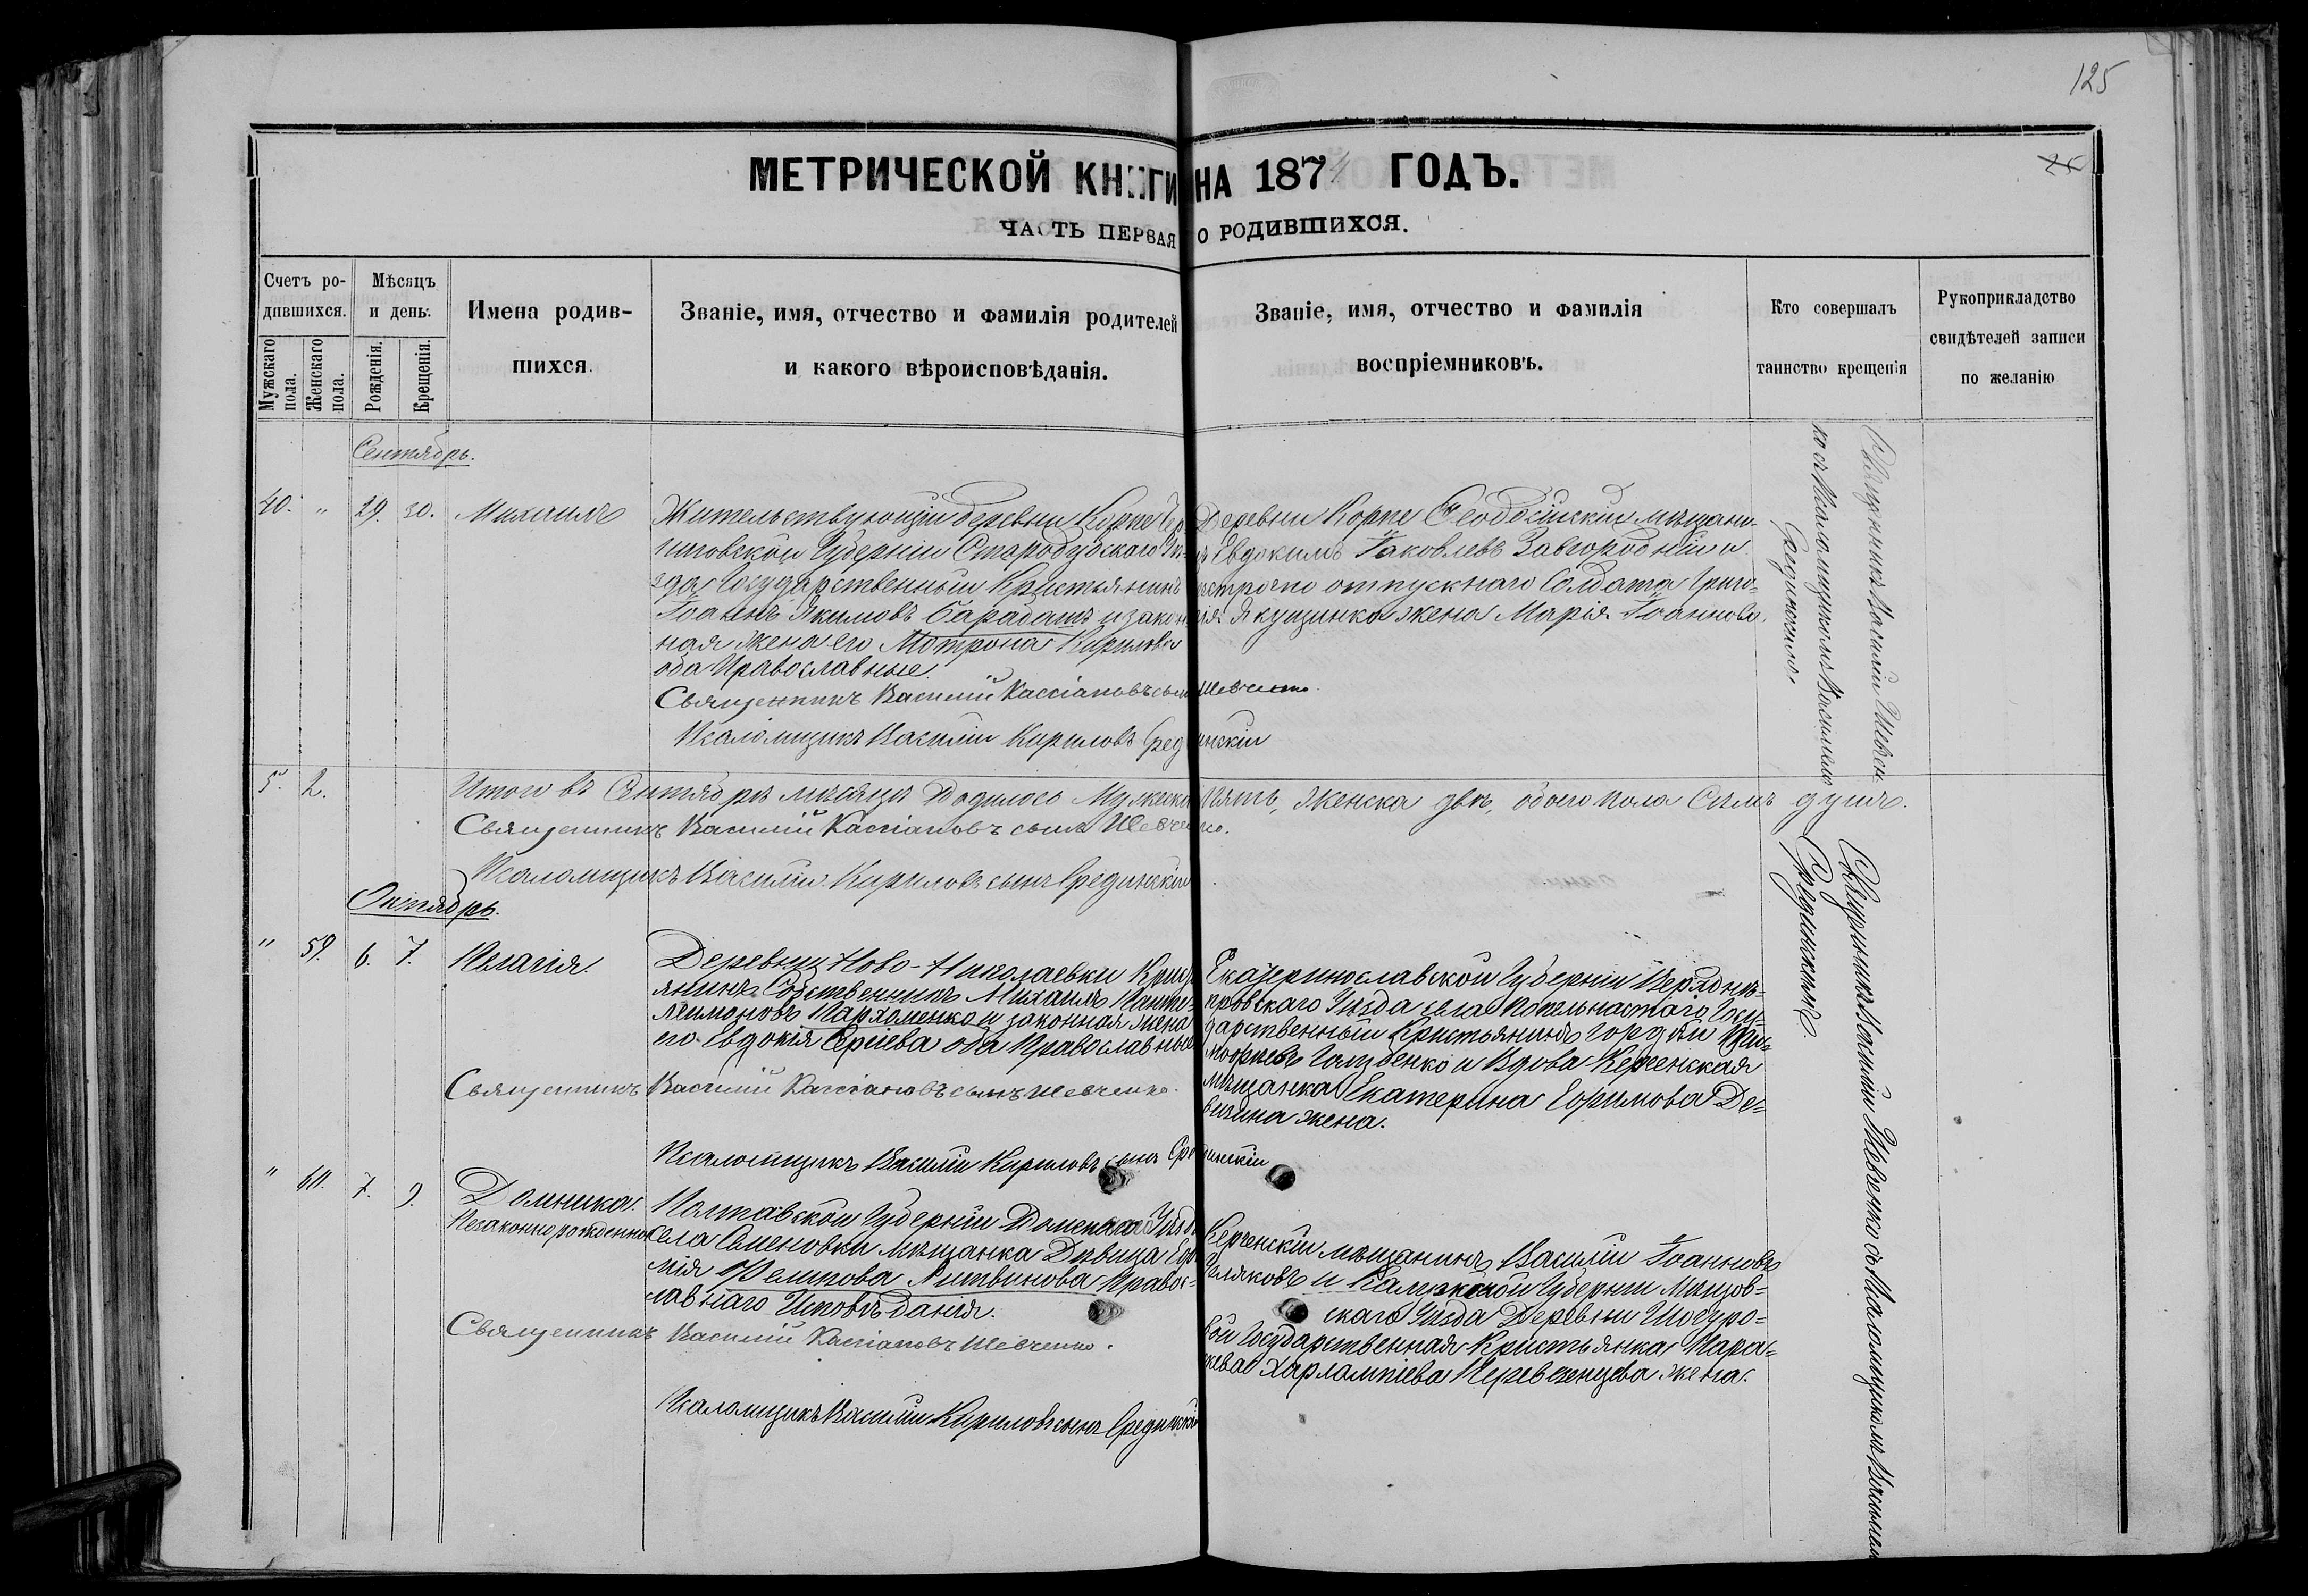 125
МЕТРИЧЕСКОЙ КНИГИ НА 1874 ГОДЪ.
ЧАСТЬ ПЕРВАЯ О РОДИВШИХСЯ.
Счетъ ро-
дившихся.
Мужскаго пола.
Женскаго пола.
Мѣсяцъ
и день.
Рожденія.
Крещенія.
Имена родив-
шихся.
Званіе, имя, отчество и фамилія родителей
и какого вѣроисповѣданія.
Званіе, имя, отчество и фамилія
воспріемниковъ.
Кто совершалъ
таинство крещенія
Рукоприкладство
свидѣтелей записи
по желанію
Сентябрь.
40. " 29. 30. Михаилъ
Жительствующій деревни Корпе Чер
ниговской Губерніи Стародубскаго Уѣ-
зда Государственный Крестьянинъ
Іоаннъ Якимовъ Барабашъ и закон
ная жена его Мотрона Кирилова
оба Православные.
Священникъ Василій Кассіановъ сынъ Шевченко.
Псаломщикъ Василій Кириловъ Срединскій
Деревни Корпе Ѳеодосійскій мѣщани-
нъ Евдокимъ Іаковлевъ Завгородній и
безсрочно отпускнаго Солдата Григо-
рія Якущинка жена Марія Іоаннова.
Священникъ Василій Шевчен
ко съ Псаломщикомъ Василіемъ
Срединскимъ.
5. 2. Итого въ Сентябрѣ мѣсяцѣ Родилось Мужеска Пять, Женска двѣ, обоего пола Семь душъ.
Священникъ Василій Кассіановъ сынъ Шевченко.
Псаломщикъ Василій Кириловъ сынъ Срединскій
Октябрь.
" 39. 6. 7. Пелагія.
Деревни Ново-Николаевки Крест
янинъ Собственникъ Михаилъ Панте-
леимоновъ Пархоменко и законная жена
его Евдокія Сергіева оба Православные
Священникъ Василій Кассіановъ сынъ Шевченко.
Псаломщикъ Василій Кириловъ сынъ Срединскій
Екатеринославской Губерніи Верхднѣ-
провскаго Уѣзда села Попельнастаго Госу-
дарственный Крестьянинъ Гордѣй
Голубенко и Вдова Керченская
мѣщанка Екатерина Ефимова Де-
вичина жена.
Священникъ Василій Шевченко съ Псаломщикомъ Василіемъ
Срединскимъ.
" 40. 7. 9. Домника.
Незаконнорожденна
Полтавской Губерніи Уѣзда
Села Семеновки мѣщанка Дѣвица Евѳи
мія Филипова Литвинова Правос-
лавнаго Исповѣданія.
Священникъ Василій Кассіановъ Шевченко.
Псаломщикъ Василій Кириловъ сынъ Срединскій
Керченскій мѣщанинъ Василій Іоанновъ
и Калужской Губерніи Мещов-
скаго Уѣзда Деревни
Государственная Крестьянка Пара-
скева Харлампіева Перевезенцева жена.